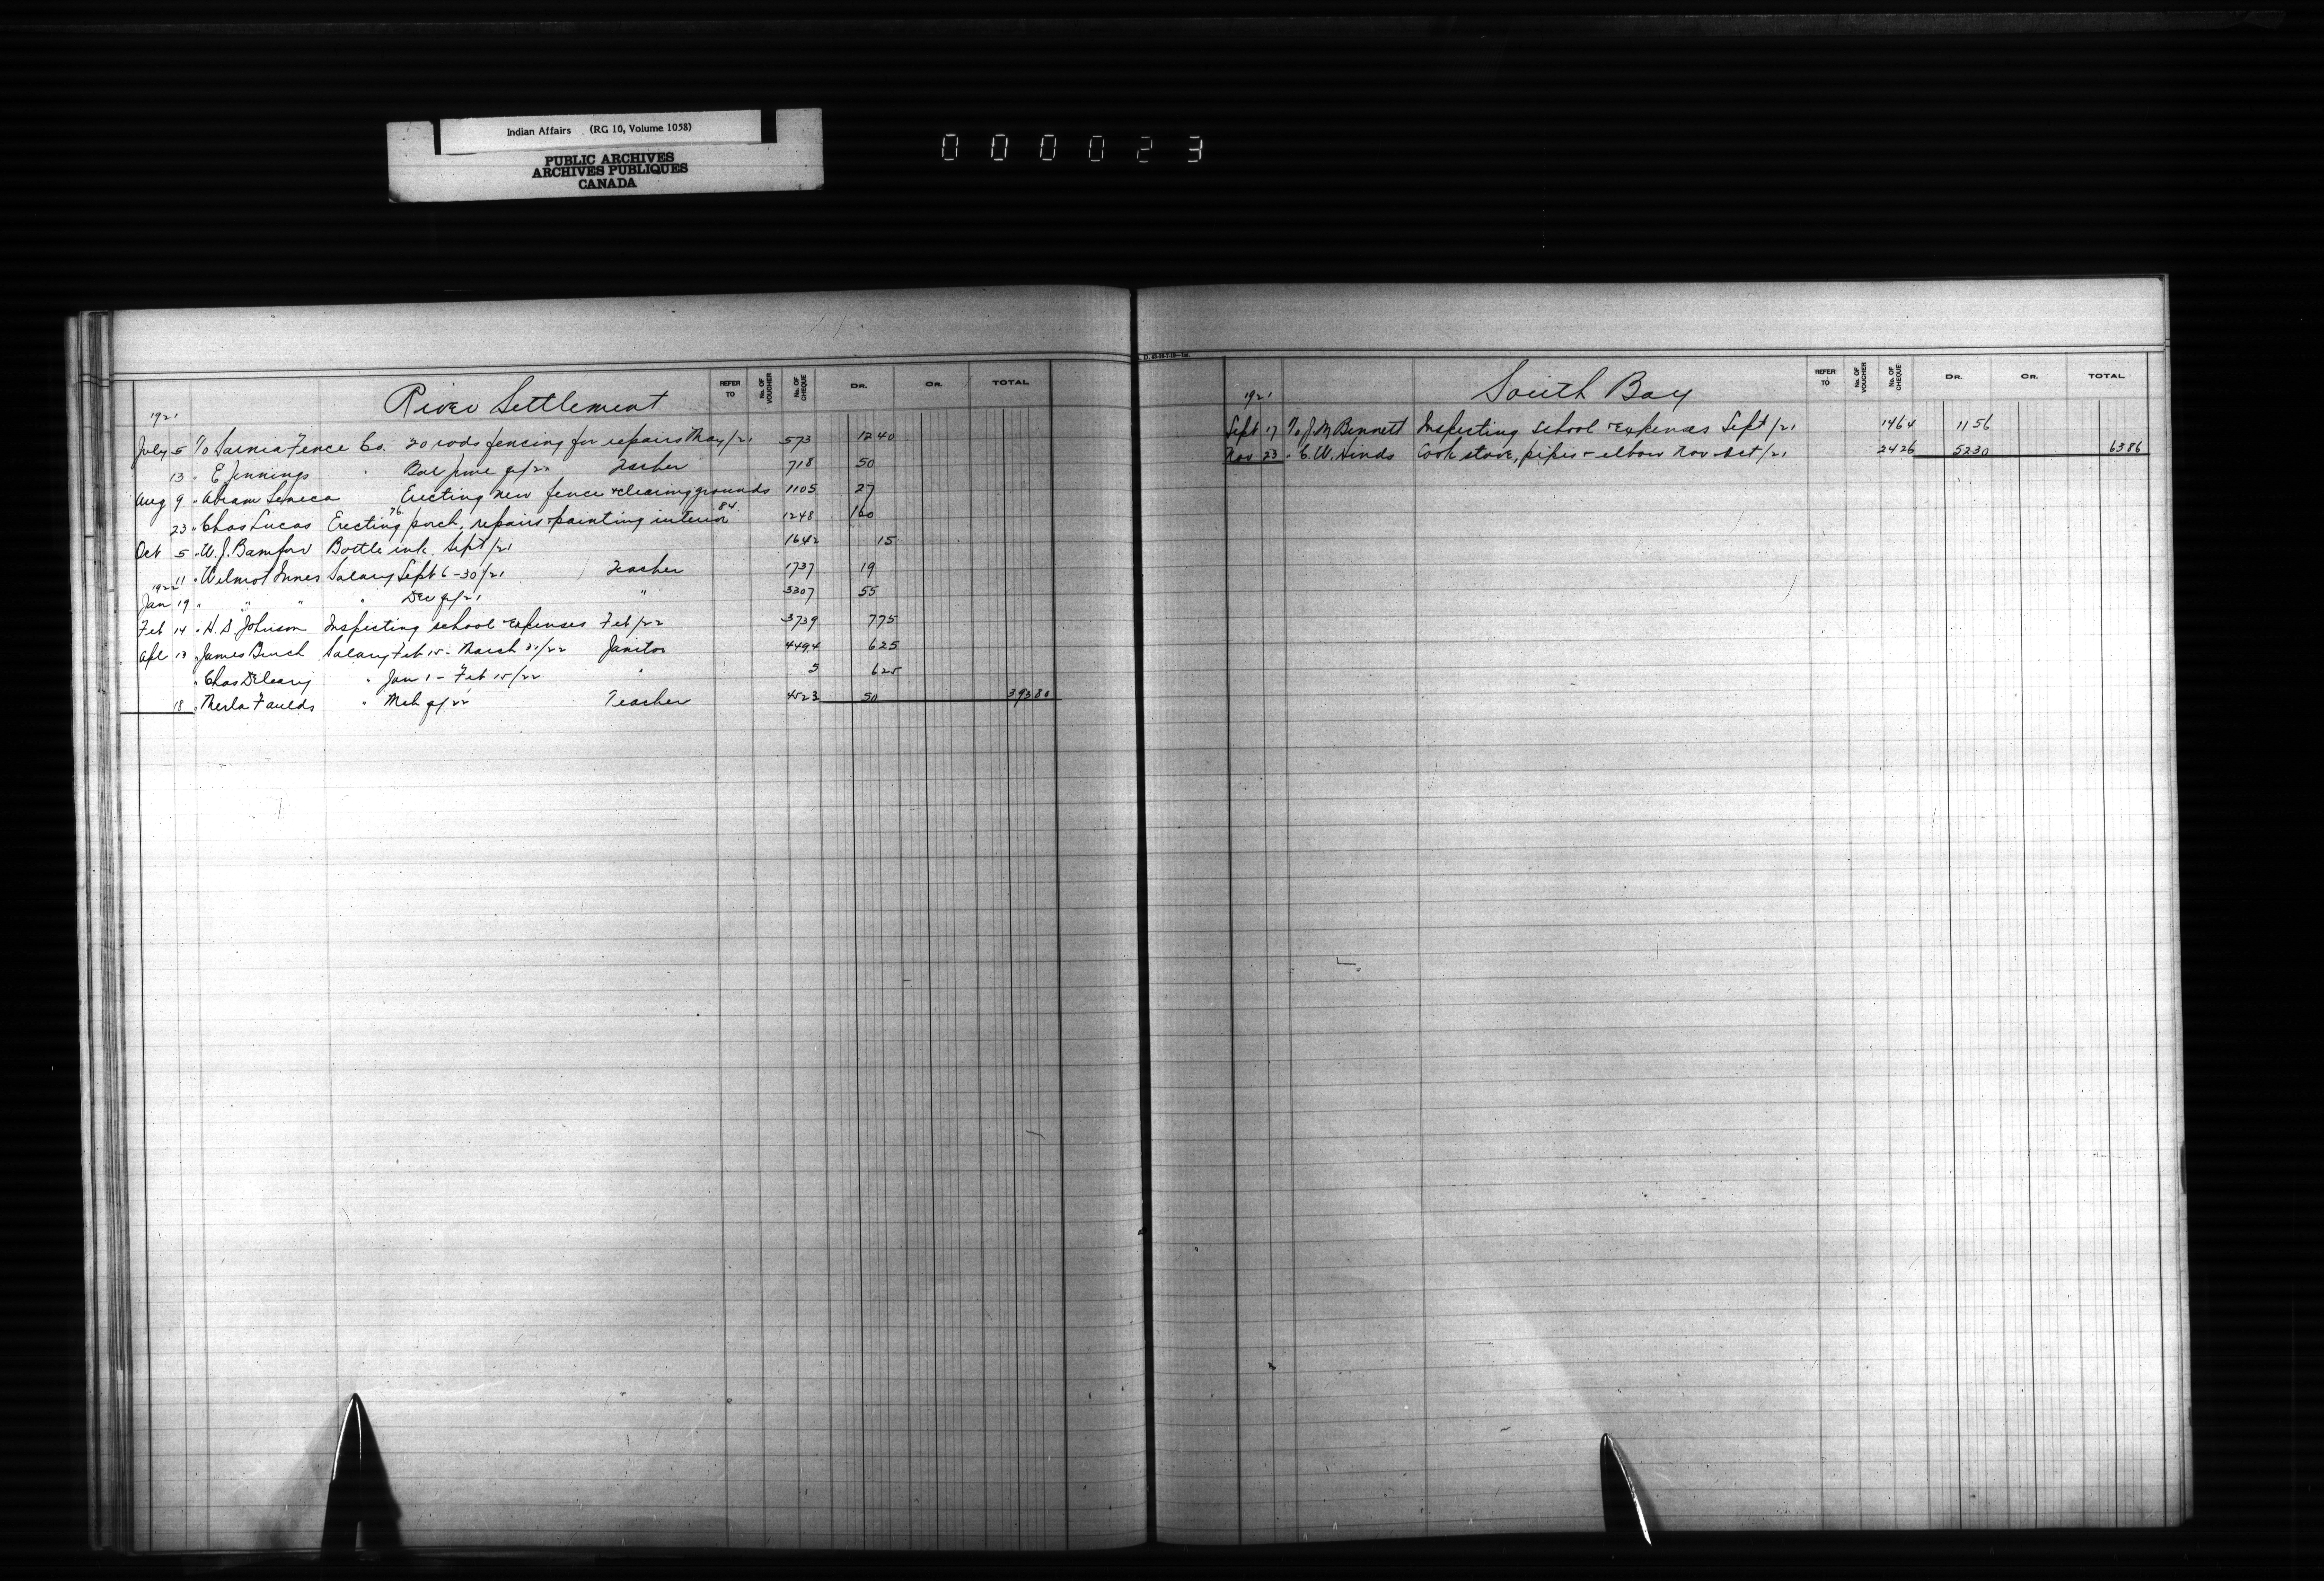 Indian Affairs (RG 10, Volume 1058)
PUBLIC ARCHIVES
ARCHIVES PUBLIQUES
CANADA
000023
River Settlement
REFER TO No. OF VOUCHER No. OF CHEQUE DR. CR. TOTAL
1921
July 5 To Sarnia Fence Co. 20 rods fencing for repairs May/21 573 12 40
13 " E Jennings " Bal June qr/21 Teacher 718 50
Aug 9 " Abram Seneca Erecting new fence & clearing grounds 1105 27
23 " Chas Lucas Erecting 76 porch, repairs & painting interior 84 1248 160
Oct 5 " W. J. Bamford Bottle ink Sept/21 1642 15
11 " Wilmot Innes Salary Sept 6-30/21 Teacher 1737 19
1922
Jan 19 " " " " Dec qr/21 " 3307 55
Feb 14 " H. D. Johnson Inspecting school & expenses Feb/22 3739 7 75
Apl 13 " James Burch Salary Feb 15 - March 31/22 Janitor 4494 6 25
" Chas Deleary " Jan 1 - Feb 15/22 " 5 6 25
18 " Merla Faulds " Mch qr/22 Teacher 4523 50 393 80
South Bay
REFER TO No. OF VOUCHER No. OF CHEQUE DR. CR. TOTAL
1921
Sept 17 To J. M Bennett Inspecting school & expenses Sept/21 1464 11 56
Nov 23 " C. W. Hinds Cook stove, pipes & elbow Nov - Oct/21 2426 52 30 63 86